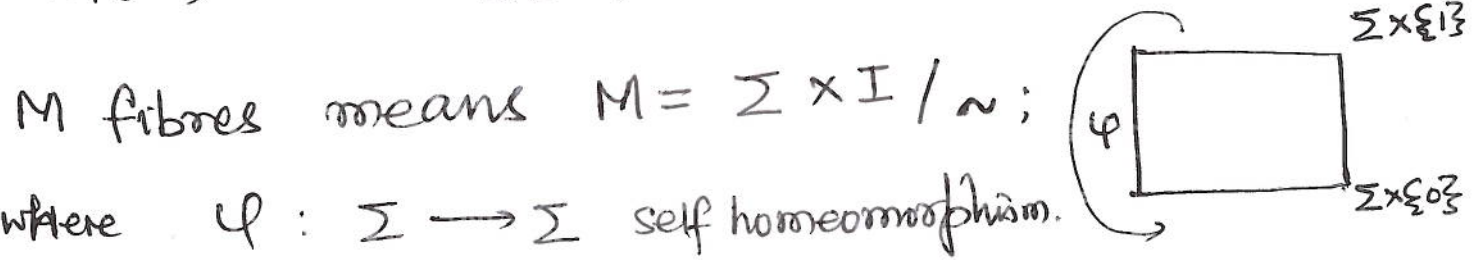 M fibres means M = Σ × I / ~ ;
where φ : Σ → Σ self homeomorphism.
Σ×{1}
φ
Σ×{0}